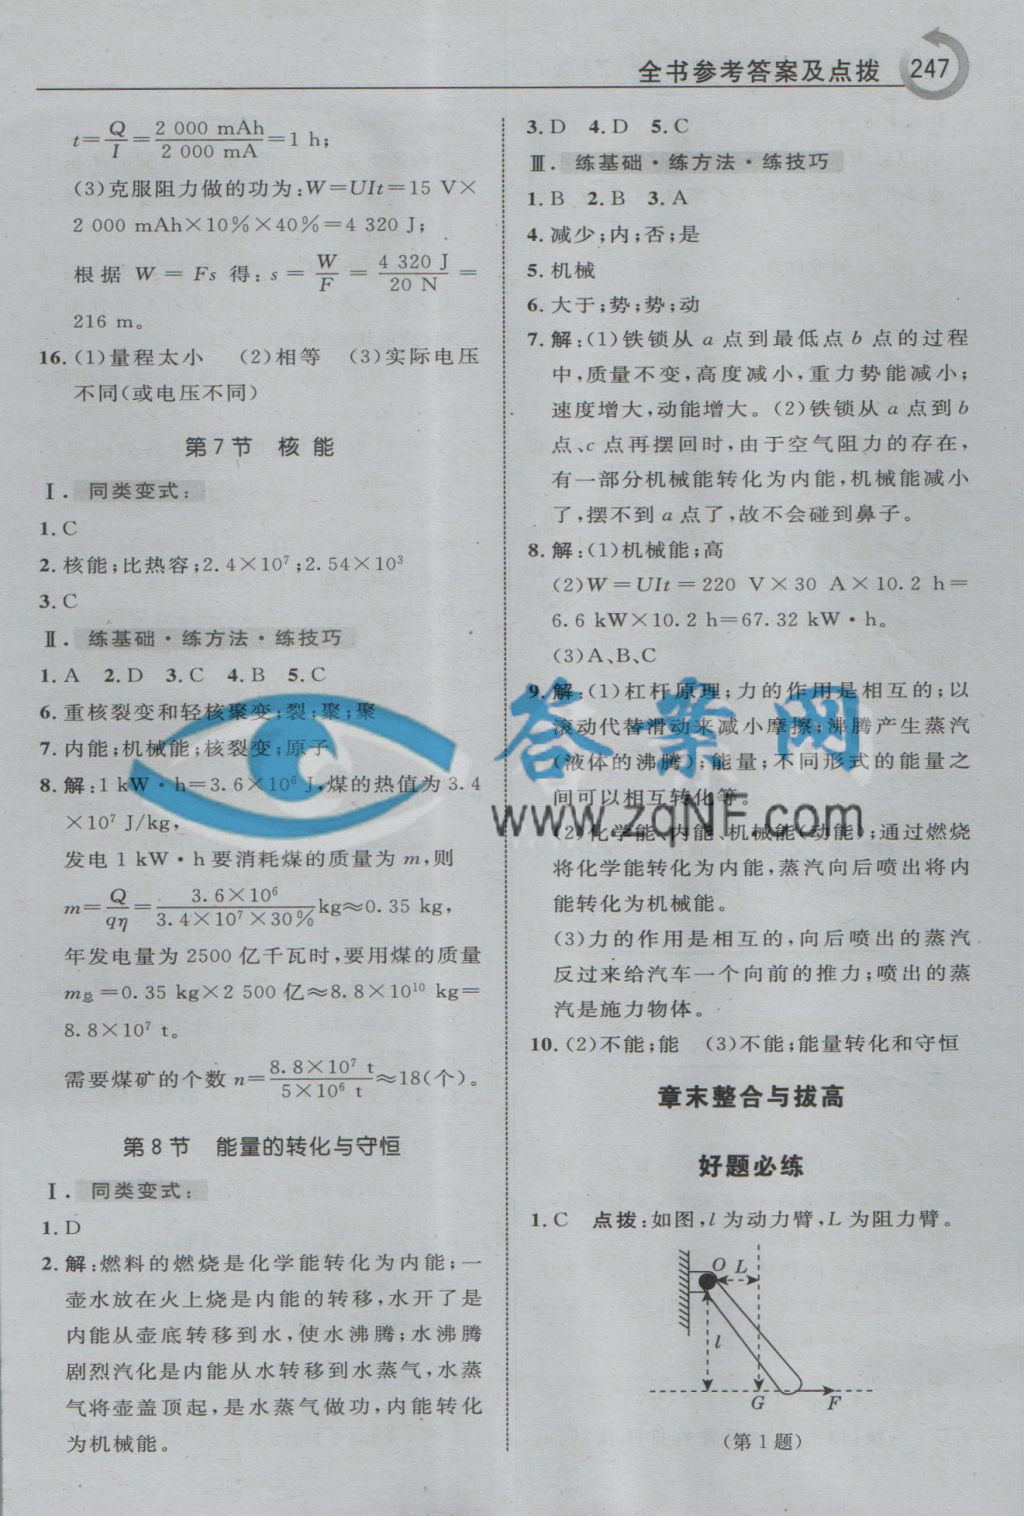 全书参考答案及点拨 247
t=Q/I=2 000 mAh/2 000 mA=1 h;
(3)克服阻力做的功为:W=UIt=15 V×
2 000 mAh×10%×40%=4 320 J;
根据 W = Fs 得: s = W/F = 4 320 J/20 N =
216 m。
16.(1)量程太小 (2)相等 (3)实际电压
不同(或电压不同)
第7节 核 能
Ⅰ. 同类变式:
1.C
2.核能;比热容;2.4×10⁷;2.54×10³
3.C
Ⅱ. 练基础·练方法·练技巧
1.A 2.D 3.C 4.B 5.C
6.重核裂变和轻核聚变;裂;聚;聚
7.内能;机械能;核裂变;原子
8.解:1 kW·h=3.6×10⁶ J,煤的热值为 3.4
×10⁷ J/kg,
发电 1 kW·h 要消耗煤的质量为 m,则
m=Q/qη=3.6×10⁶/3.4×10⁷×30% kg≈0.35 kg,
年发电量为 2500 亿千瓦时,要用煤的质量
m总=0.35 kg×2 500 亿≈8.8×10¹⁰ kg=
8.8×10⁷ t。
需要煤矿的个数 n=8.8×10⁷ t/5×10⁶ t≈18(个)。
第8节 能量的转化与守恒
Ⅰ. 同类变式:
1.D
2.解:燃料的燃烧是化学能转化为内能;一
壶水放在火上烧是内能的转移,水开了是
内能从壶底转移到水,使水沸腾;水沸腾
剧烈汽化是内能从水转移到水蒸气,水蒸
气将壶盖顶起,是水蒸气做功,内能转化
为机械能。
3.D 4.D 5.C
Ⅲ. 练基础·练方法·练技巧
1.B 2.B 3.A
4.减少;内;否;是
5.机械
6.大于;势;势;动
7.解:(1)铁锁从 a 点到最低点 b 点的过程
中,质量不变,高度减小,重力势能减小;
速度增大,动能增大。(2)铁锁从 a 点到 b
点、c 点再摆回时,由于空气阻力的存在,
有一部分机械能转化为内能,机械能减小
了,摆不到 a 点了,故不会碰到鼻子。
8.解:(1)机械能;高
(2)W=UIt=220 V×30 A×10.2 h=
6.6 kW×10.2 h=67.32 kW·h。
(3)A、B、C
9.解:(1)杠杆原理;力的作用是相互的;以
滚动代替滑动来减小摩擦;沸腾产生蒸汽
(液体的沸腾);能量;不同形式的能量之
间可以相互转化等。
(2)化学能、内能、机械能(动能);通过燃烧
将化学能转化为内能,蒸汽向后喷出将内
能转化为机械能。
(3)力的作用是相互的,向后喷出的蒸汽
反过来给汽车一个向前的推力;喷出的蒸
汽是施力物体。
10.(2)不能;能 (3)不能;能量转化和守恒
章末整合与拔高
好题必练
1.C 点拨:如图,l 为动力臂,L 为阻力臂。
O L
l
G F
(第1题)
答案网
www.zqNF.com